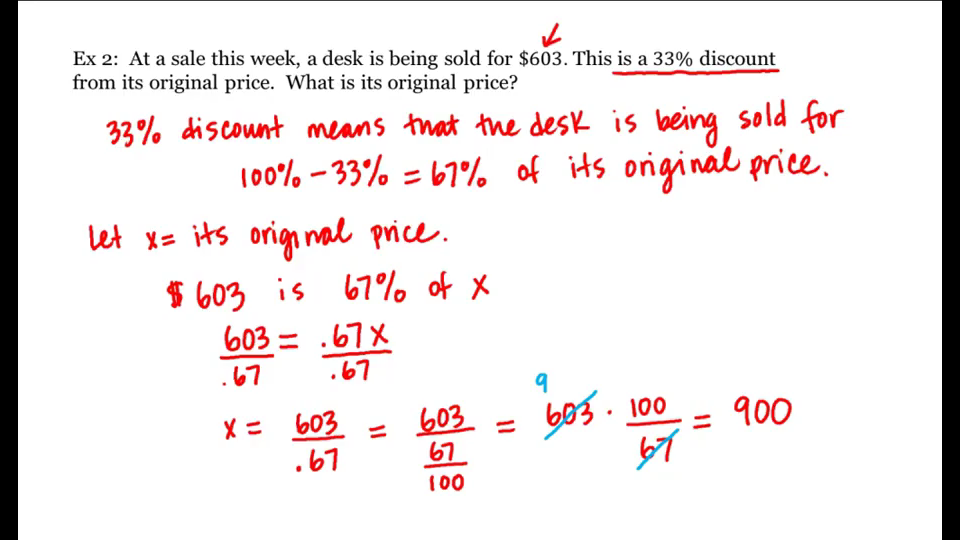 Ex 2: At a sale this week, a desk is being sold for $603. This is a 33% discount
from its original price. What is its original price?
33% discount means that the desk is being sold for
100% - 33% = 67% of its original price.
Let x = its original price.
$603 is 67% of x
603/.67 = .67x/.67
x = 603/.67 = 603/(67/100) = 603 · 100/67 = 900
9